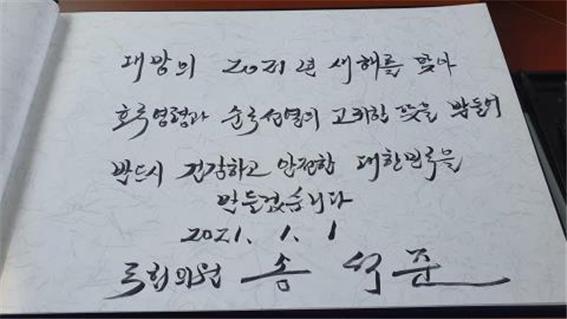 대망의 2021년 새해를 맞아
호국영령과 순국선열의 고귀한 뜻을 받들어
반드시 건강하고 안전한 대한민국을
만들겠습니다
2021. 1. 1
국회의원 송석준